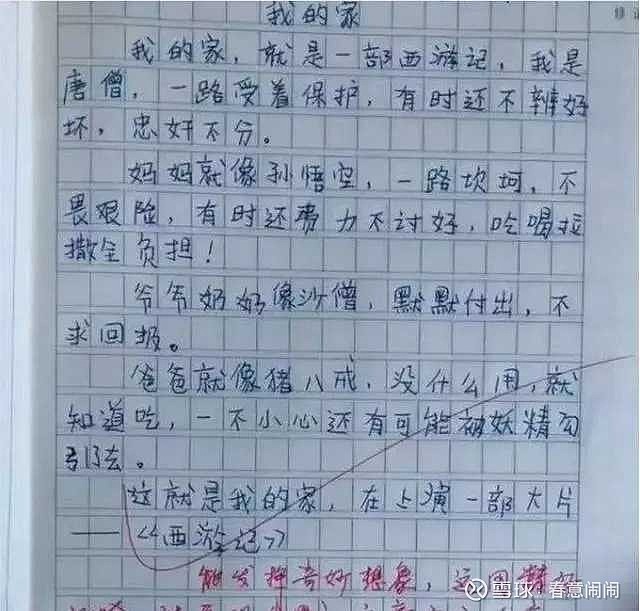 我的家
我的家，就是一部西游记，我是
唐僧，一路受着保护，有时还不辨好
坏，忠奸不分。
妈妈就像孙悟空，一路坎坷，不
畏艰险，有时还费力不讨好，吃喝拉
撒全负担！
爷爷奶奶像沙僧，默默付出，不
求回报。
爸爸就像猪八戒，没什么用，就
知道吃，一不小心还有可能被妖精勾
引去。
这就是我的家，在上演一部大片
——《西游记》
能发挥奇妙想象，运用
雪球：春意闹闹